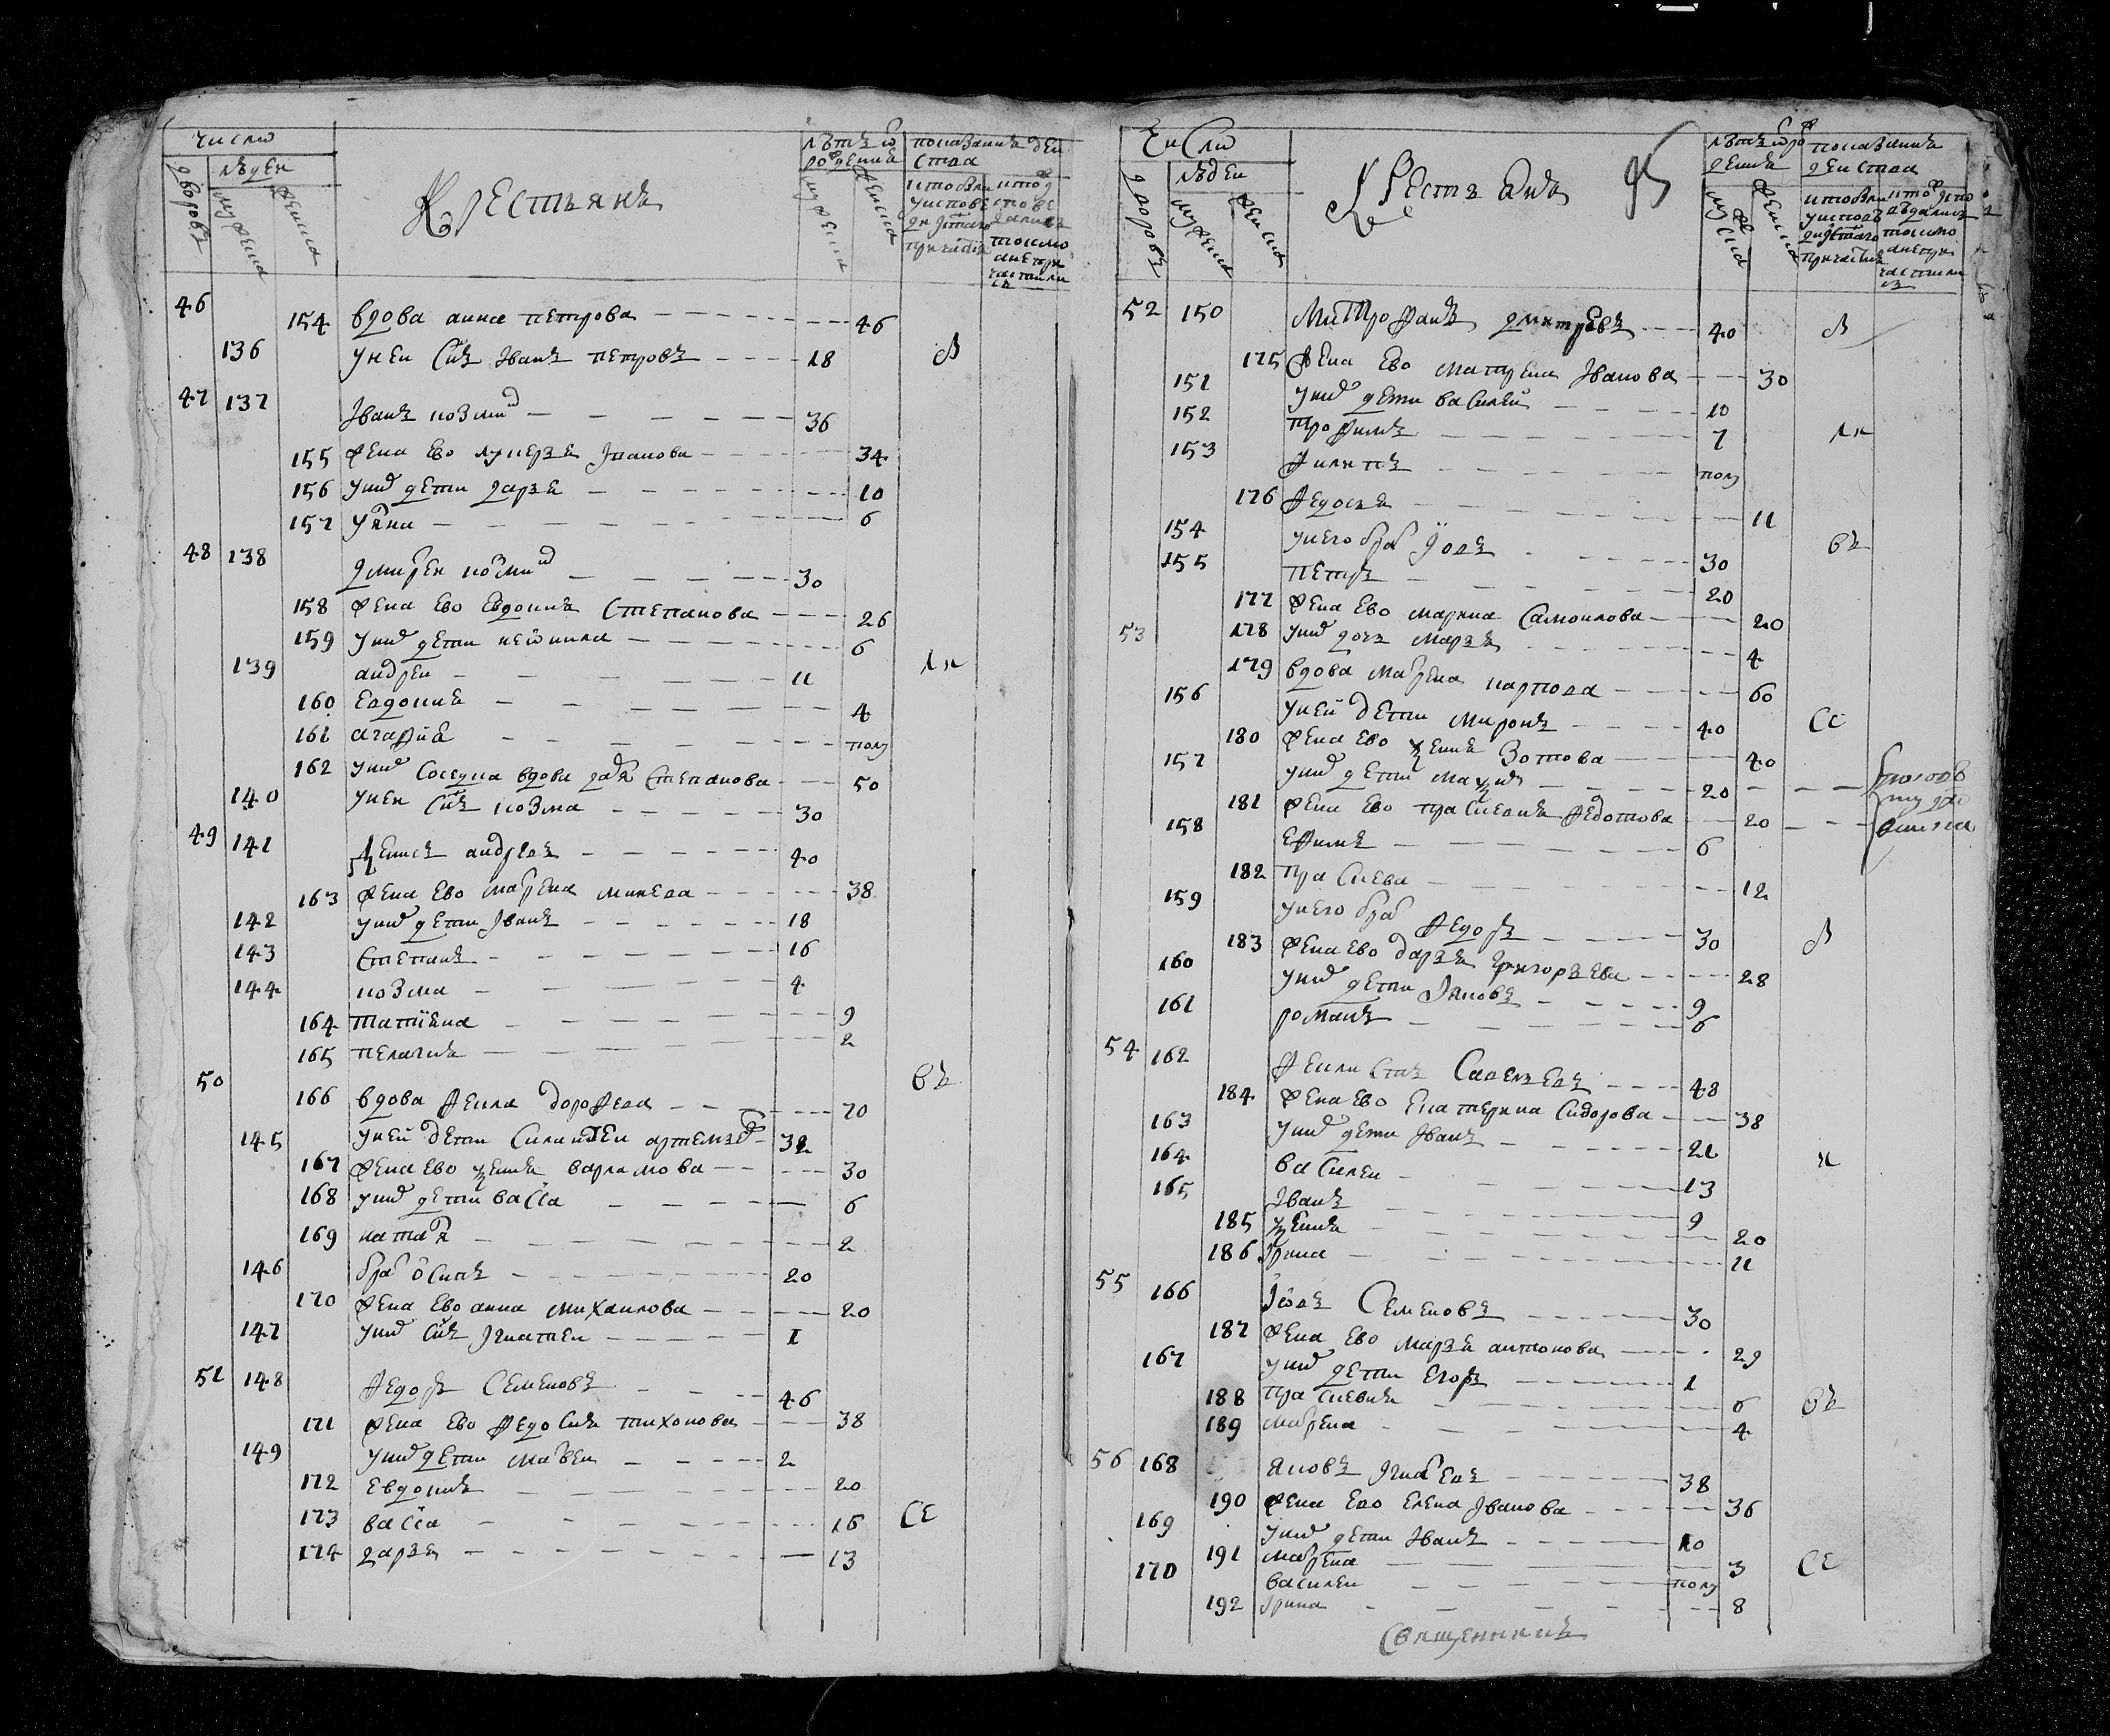 число
дворовъ
людеи
мужеска
женска
Крестьянъ
лѣтъ ѿ рожденiя
мужеска
женска
показанiе деиства
кто были у исповеди и с̃таго причастiя
кто исповедались токмо а не причастились
46
154 вдова анна петрова 46
136 у неи сн̃ъ Iванъ петровъ 18
47 137 Iванъ козминъ 36
155 жена ево лукерья Iпатова 34
156 у них дети дарья 10
157 уляна 6
48 138 дмитреи козминъ 30
158 жена ево евдокия Степанова 26
159 у них дети неѿнила 6
139 андреи 11
160 евдокия 4
161 агафия полу
162 у них соседка вдова дарья Степанова 50
140 у неи сн̃ъ козма 30
49 141 Денисъ андреевъ 40
163 жена ево матрена минеева 38
142 у них дети Iванъ 18
143 Степанъ 16
144 козма 4
164 татияна 9
165 пелагия 2
50
166 вдова фекла дорофеева 70
145 у неи дети Силантеи артемьев 32
167 жена ево ксения варламова 30
168 у них дети васса 6
169 наталя 2
146 брат ѻсипъ 20
170 жена ево анна михаилова 20
147 у них сн̃ъ Iгнатеи 1
51 148 Федоръ Семеновъ 46
171 жена ево федосия тихонова 38
149 у них дети матвеи 2
172 евдокия 20
173 васса 16 СЕ
174 дарья 13
Число
дворовъ
людеи
мужеска
женска
Крестьянъ
95
лѣтъ ѿ рождения
мужеска
женска
показание деиства
кто были у исповеди и с̃таго причастия
кто исповедались токмо а не причастились
52 150 Митрофанъ дмитревъ 40
175 жена ево матрена Iванова 30
151 у них дети василеи 10
152 трофимъ 7
153 филипъ полу
176 федосья 11
154 у него брат Iовъ 30
155 петръ 20
177 жена ево марина Самоилова 20
53 178 у них дочь марья 4
179 вдова матрена карпова 60
156 у неи дети миронъ 40
180 жена ево ксения зотова 40
157 у них дети максим 20
181 жена ево прасковья федотова 20
158 ефимъ 6
182 прасковя 12
159 у него брат федоръ 30
183 жена ево дарья григорьева 28
160 у них дети Яковъ 9
161 романъ 6
54 162 феклистъ Савельевъ 48
184 жена ево екатерина Сидорова 38
163 у них дети Iванъ 21
164 василеи 13
165 Iванъ 9
185 ксения 20
186 Iрина 11
55 166 Iѻвъ Семеновъ 30
187 жена ево марья антонова 29
167 у них дети егоръ 1
188 прасковия 6
189 матрена 4
56 168 яковъ Iгнатьевъ 38
190 жена ево елена Iванова 36
169 у них дети Iванъ 10
191 матрена 3 СЕ
170 василеи полу
192 Iрина 8
Священникъ